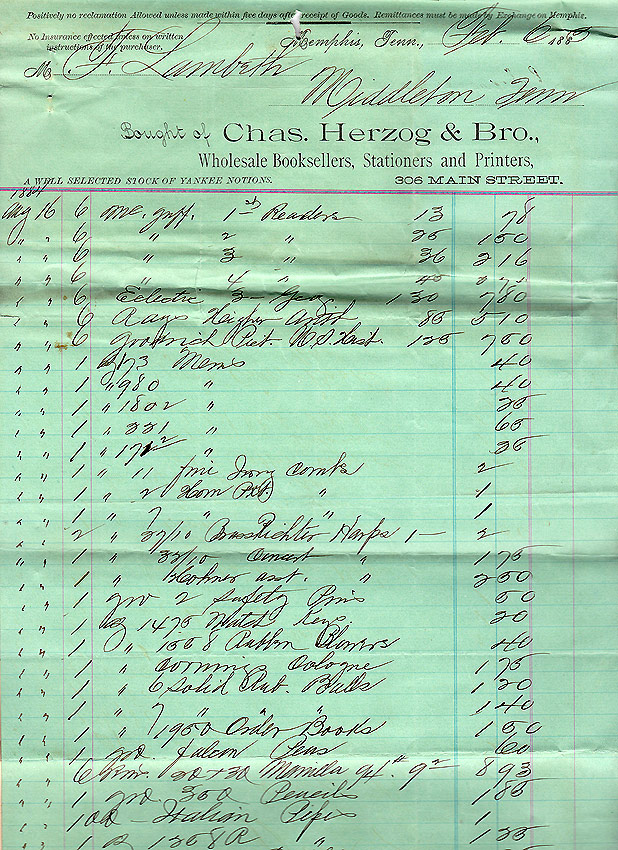 Positively no reclamation Allowed unless made within five days after receipt of Goods. Remittances must be made by Exchange on Memphis.
No Insurance effected unless on written
instructions of the purchaser.
Memphis, Tenn., 6 188
M F. Lambeth
Middleton Tenn
Bought of Chas. Herzog & Bro.,
Wholesale Booksellers, Stationers and Printers,
A WELL SELECTED STOCK OF YANKEE NOTIONS.
306 MAIN STREET.
1884
Aug 16 6 Mc. Guff. 1st Readers 13 78
" " 6 " 2 " 25 150
" " 6 " 3 " 36 216
" " 6 " 4 " 45
" " 6 Eclectic 3 Geog 130 780
" " 6 Rays Higher Arith 85 510
" " 6 Goodrich Pict. U.S. Hist. 125 750
" " 1 173 Mems 40
" " 1 " 980 " 40
" " 1 " 1802 " 25
" " 1 " 221 " 65
" " 1 " " 25
" " 1 " 11 fine Ivory Combs 2
" " 1 " 2 Horn " 1
" " 1 " 7 " " 1
" " 2 " Harps 1 — 2
" " 1 " Concert " 175
" " 1 " Hohner asst. " 250
" " 1 gro 2 Safety Pins 50
" " 1 1475 Watch Keys 20
" " 1 " 1558 Rubber 40
" " 1 " Corning Cologne 175
" " 1 " 6 Solid Rub. Balls 120
" " 1 " 7 " " " 140
" " 1 " 1950 Order Books 150
" " 1 gro. Falcon Pens 60
" " 6 Rm. 20 + 30 Manilla 893
" " 1 gro 350 Pencils 185
" " 100 — Italian Pipes 1
" " 1 1258 R " 125